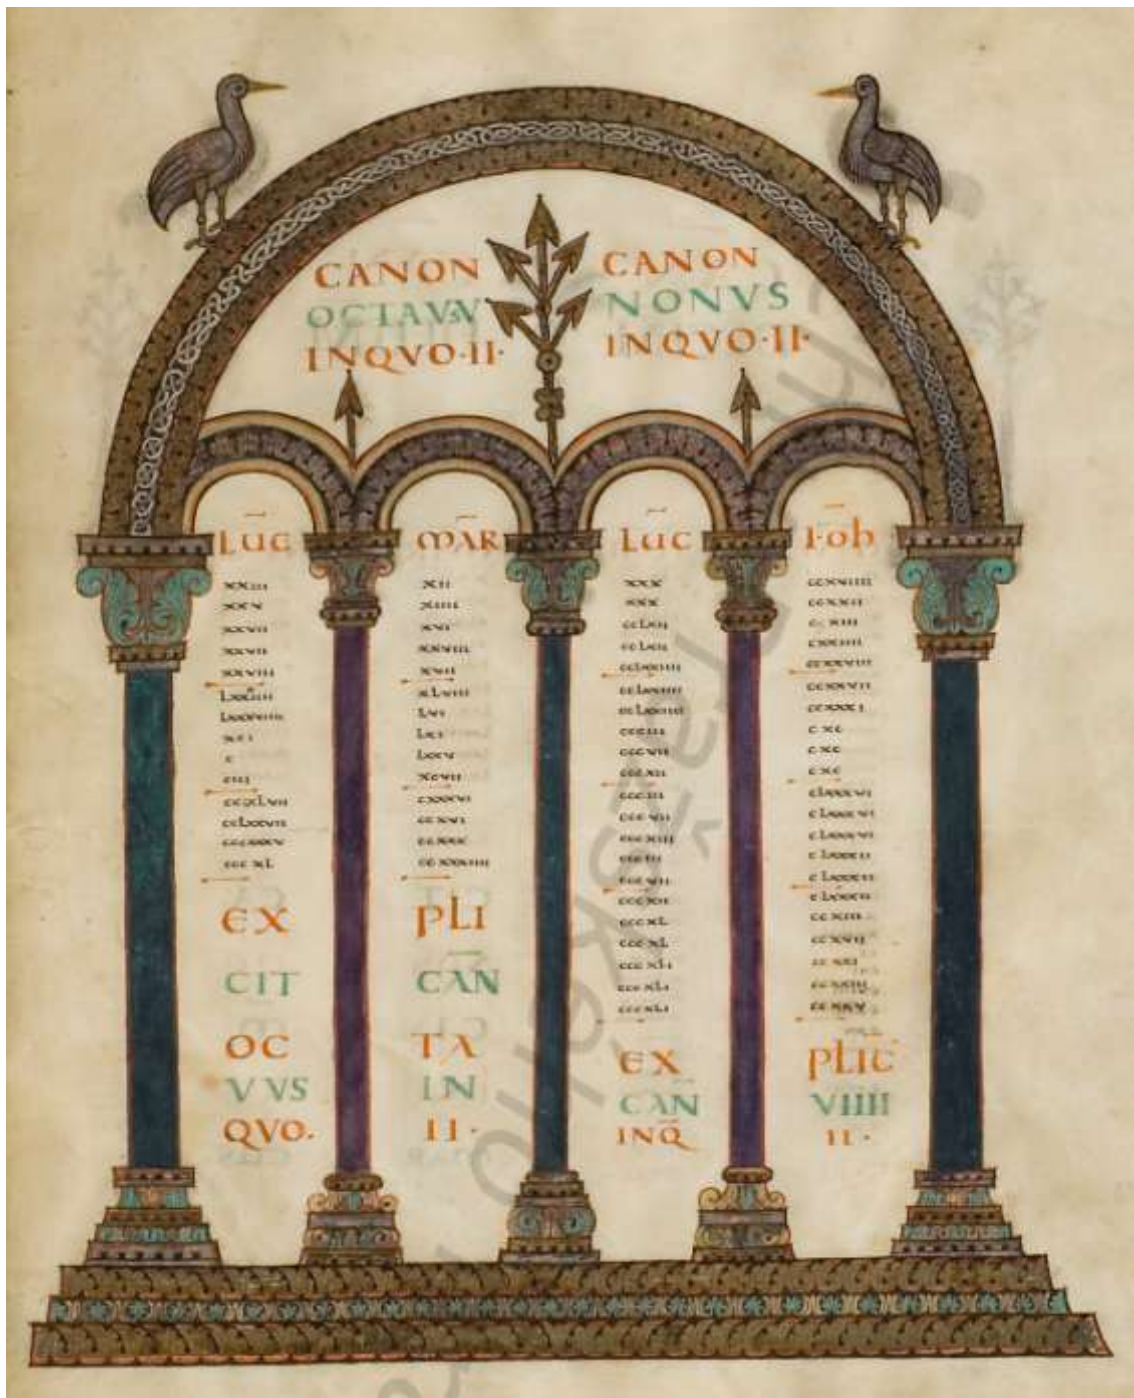 CANON
OCTAVUV
INQVO·II·
CANON
NONVS
INQVO·II·
Luc
xxiii
xxv
xxvii
xxvii
xxviii
Lxxxviiii
xci
c
ciii
ccxLvii
ccLxxvii
cccxxxv
cccxL
EX
CIT
OC
VVS
QVO.
MAR
xii
xiiii
xvi
xxviii
xvii
xLviii
Lvi
Lxi
Lxxv
xcvii
cxxxvi
ccxvi
ccxxx
ccxxxiiii
PLI
CAN
TA
IN
II·
Luc
xxx
xxx
ccLxii
ccLxii
ccLxxiiii
ccLxxiiii
ccLxxiiii
ccciii
cccvii
cccxii
ccciii
cccvii
cccxiii
ccciii
cccvii
cccxii
cccxL
cccxL
cccxLi
cccxLi
cccxLi
EX
CAN
INQ
Ioh
ccxviiii
ccxxii
ccxiii
cxxiiii
ccxxviii
ccxxvii
ccxxxi
cxc
cxc
cxc
cLxxxvi
cLxxxvi
cLxxxvi
cLxxxii
cLxxxii
cLxxxii
ccxiii
ccxvii
ccxxi
ccxxiii
ccxxv
PLIC
VIIII
II·